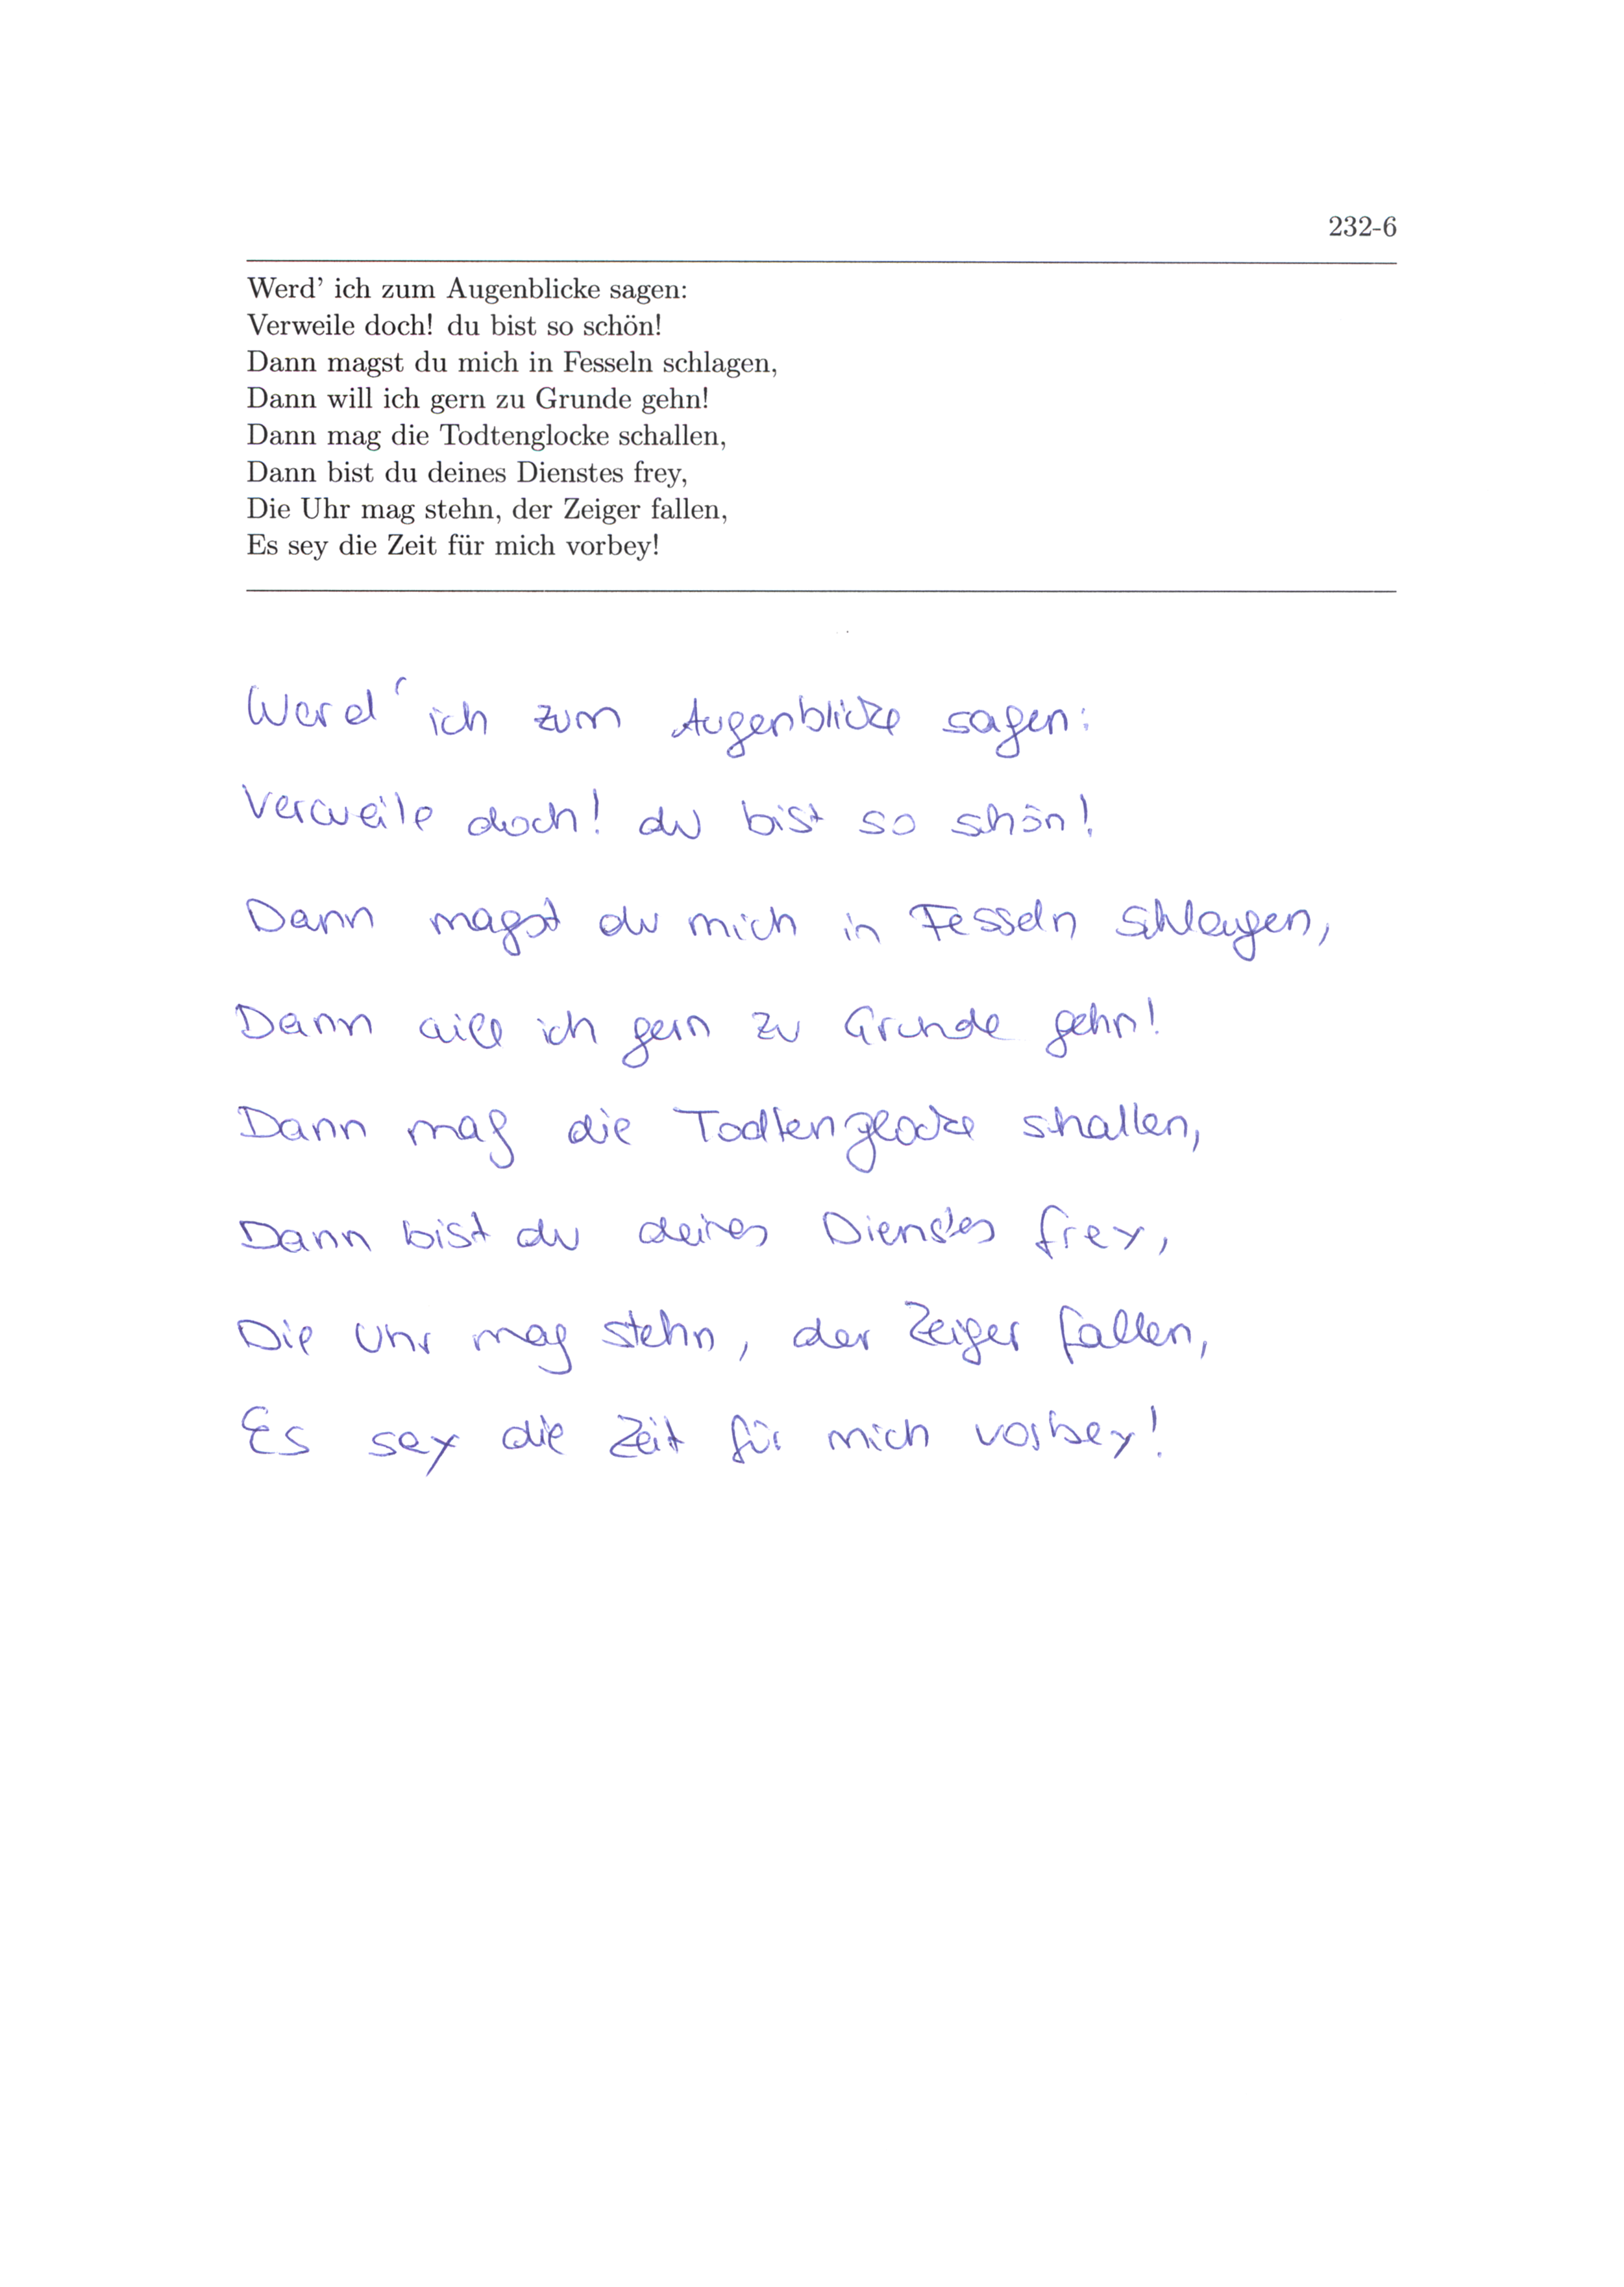 232-6
Werd' ich zum Augenblicke sagen:
Verweile doch! du bist so schön!
Dann magst du mich in Fesseln schlagen,
Dann will ich gern zu Grunde gehn!
Dann mag die Todtenglocke schallen,
Dann bist du deines Dienstes frey,
Die Uhr mag stehn, der Zeiger fallen,
Es sey die Zeit für mich vorbey!
Werd' ich zum Augenblicke sagen:
Verweile doch! du bist so schön!
Dann magst du mich in Fesseln schlagen,
Dann will ich gern zu Grunde gehn!
Dann mag die Todtenglocke schallen,
Dann bist du deines Dienstes frey,
Die Uhr mag stehn, der Zeiger fallen,
Es sey die Zeit für mich vorbey!